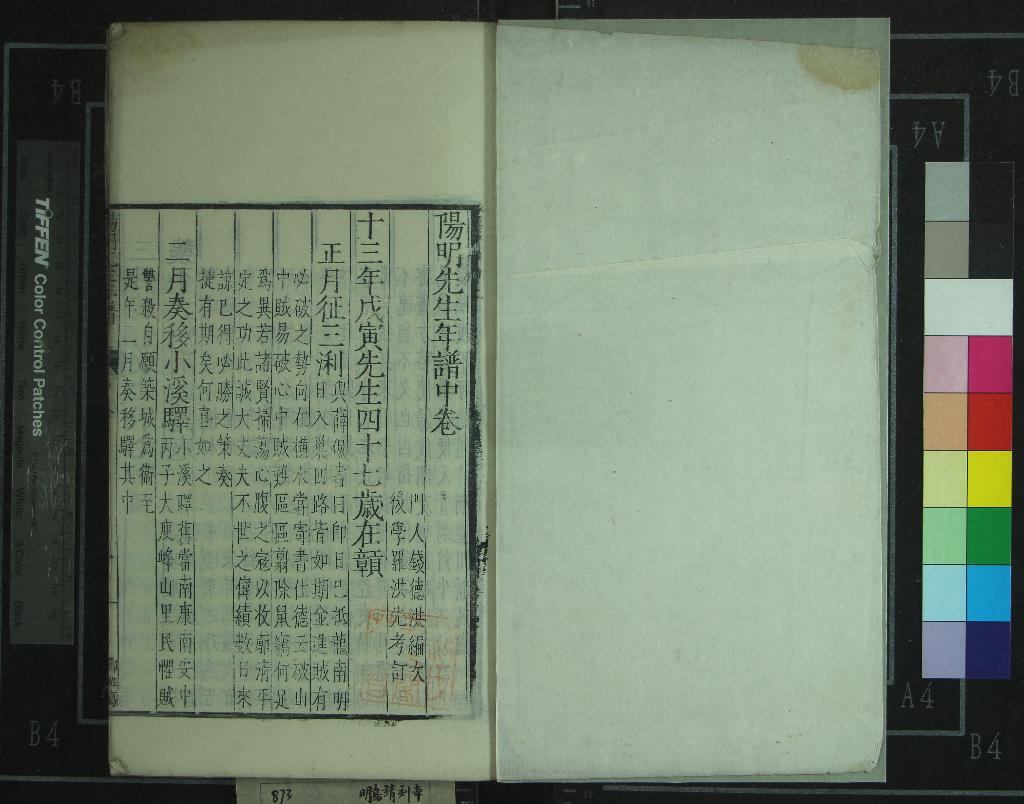 陽明先生年譜中卷
門人錢德洪編次
後學羅洪先考訂
十三年戊寅先生四十七歲在贛
正月征三浰
與薛侃書曰即日已抵龍南明
日入巢四路皆如期並進賊有
必破之勢向在橫水嘗寄書仕德云破山
中賊易破心中賊難區區翦除鼠竊何足
為異若諸賢掃蕩心腹之寇以收廓清平
定之功此誠大丈夫不世之偉績數日來
諒已得必勝之策奏
捷有期矣何喜如之
二月奏移小溪驛
小溪驛舊當南康南安中
丙子大庾峰山里民懼賊
讐殺自願築城為衛至
是年二月奏移驛其中
TIFFEN Color Control Patches
B4
B4
A4
A4
B4
B4
873
明嘉靖刻本